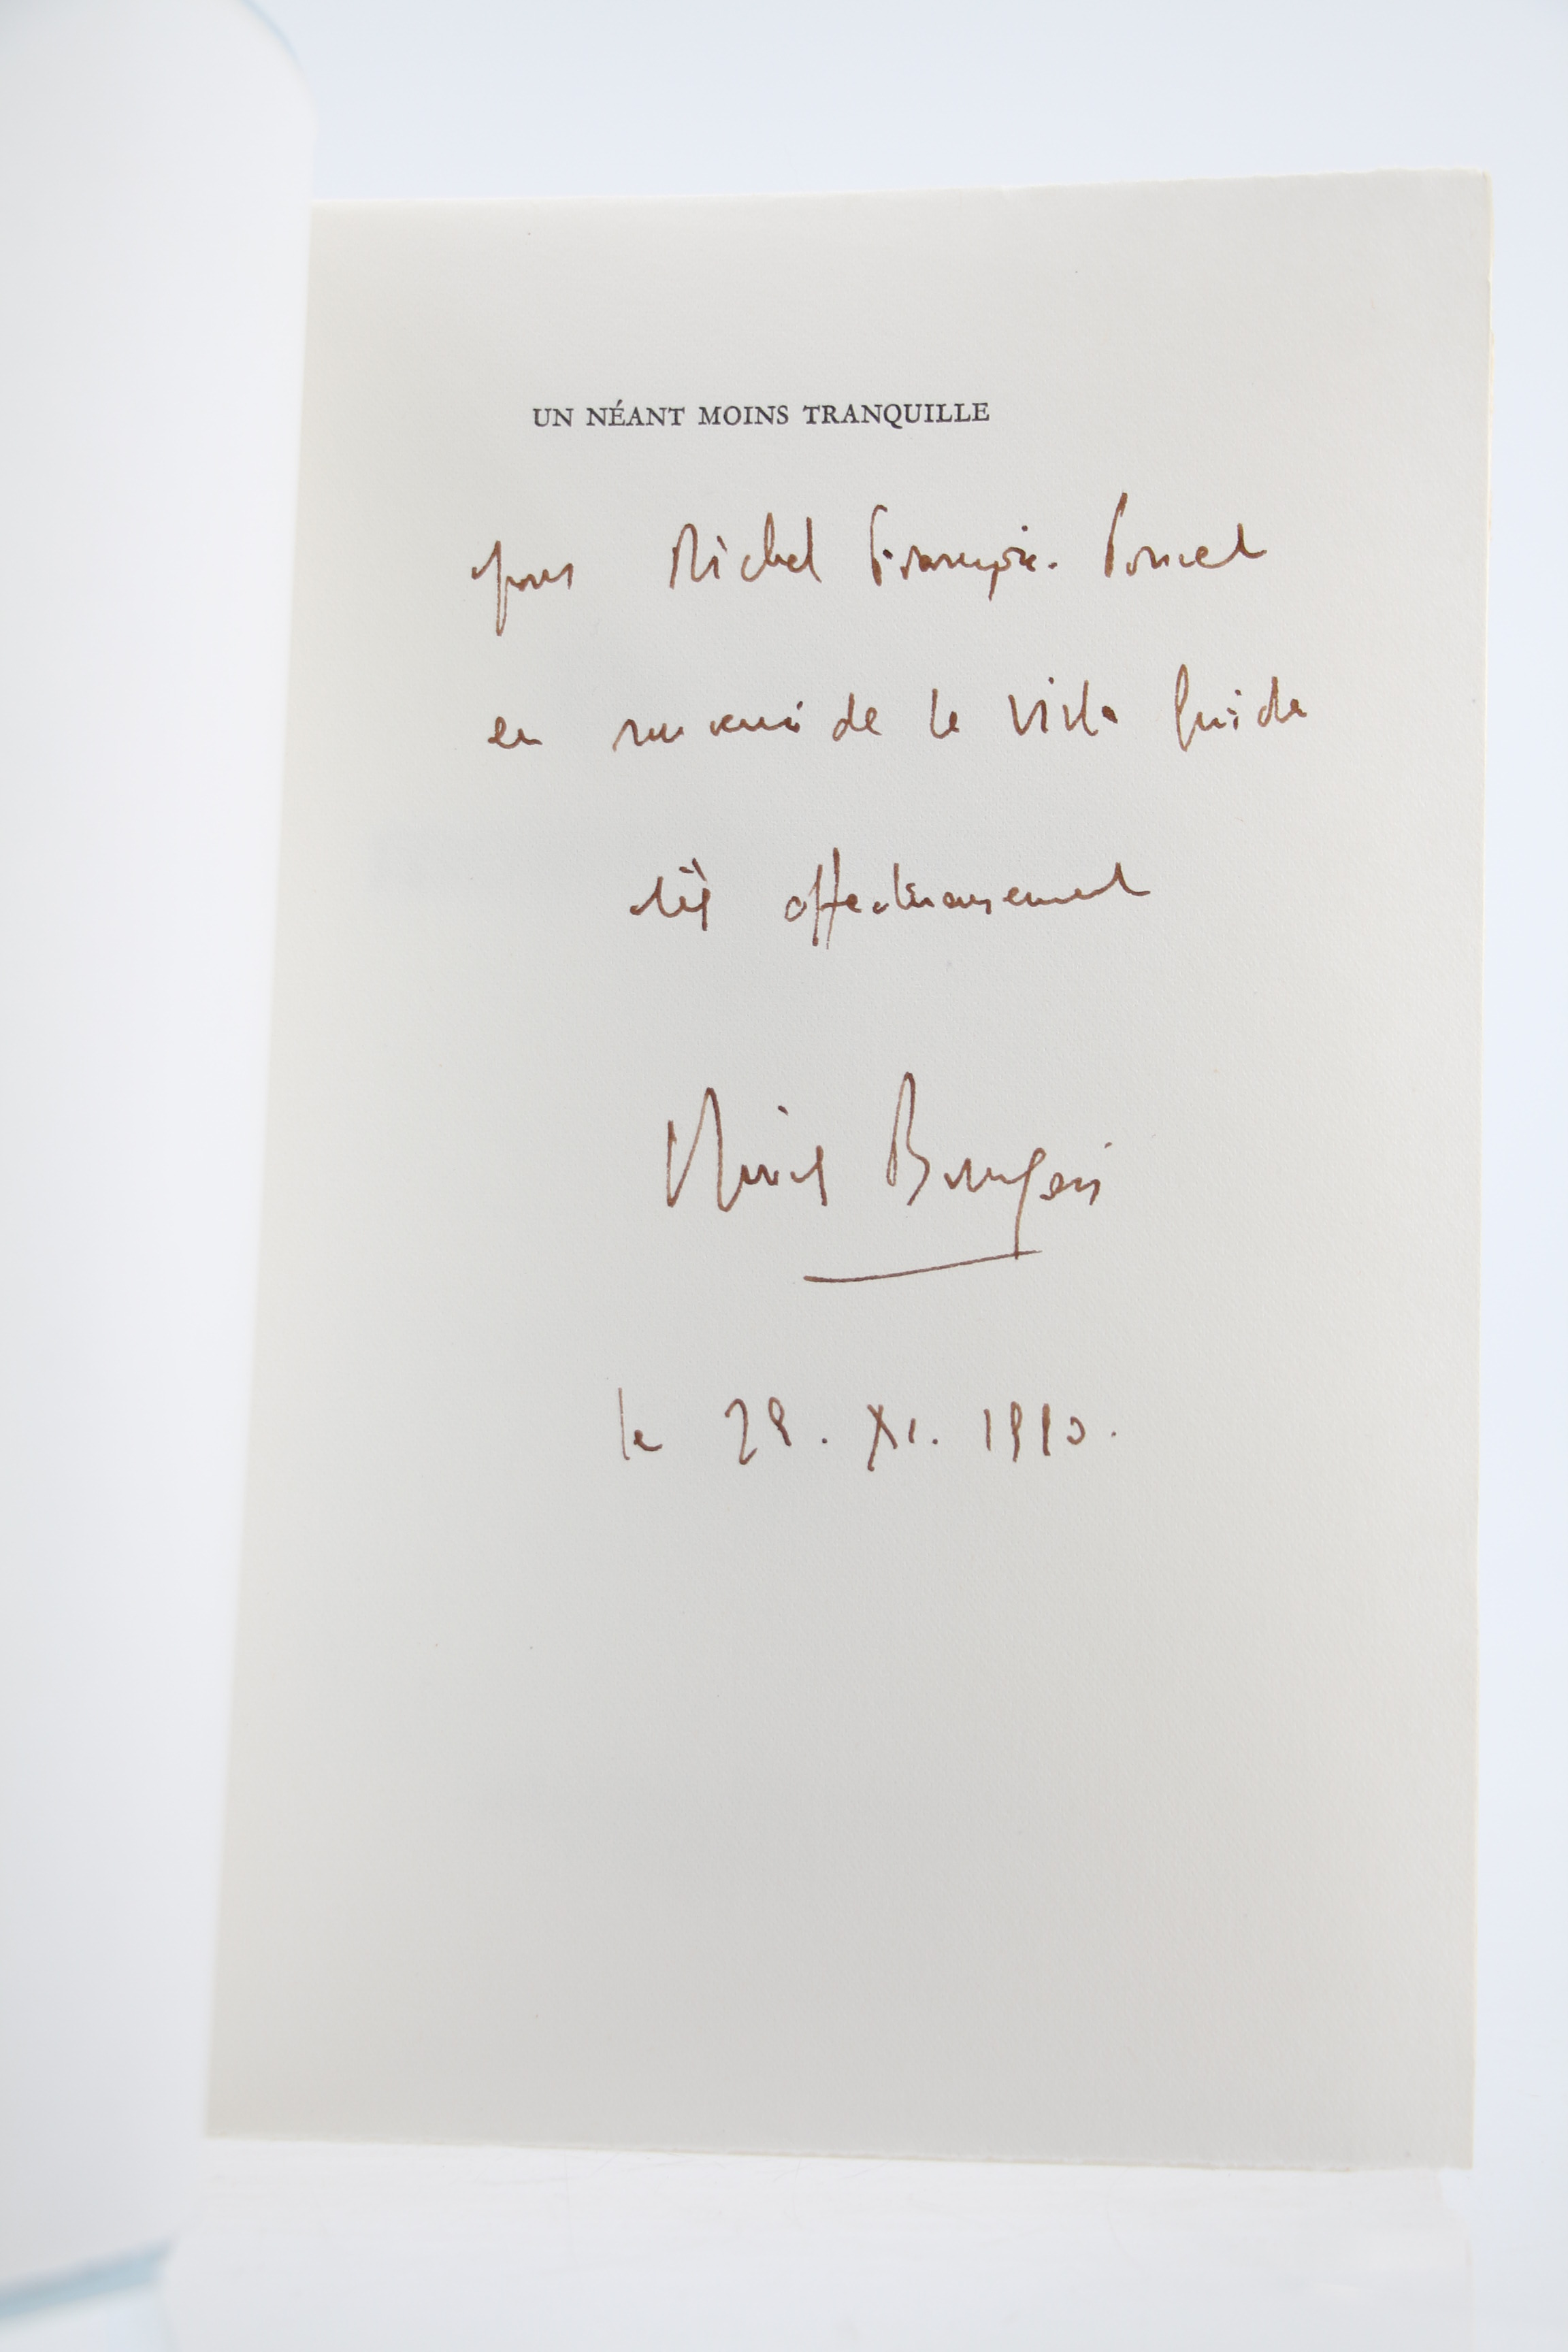 UN NÉANT MOINS TRANQUILLE
pour Michel François-Poncet
en souvenir de la Villa Guida
très affectueusement
Bourgeois
le 28. XI. 1990.